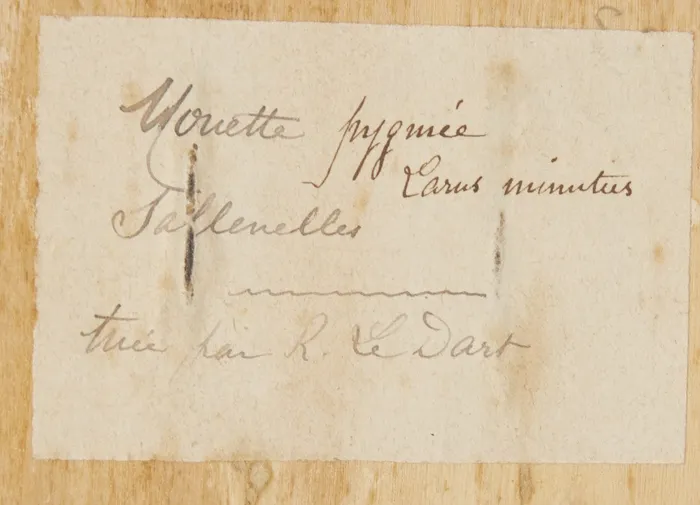 Mouette pygmée
Larus minutus
Sallenelles
tuée par R. Le Dart